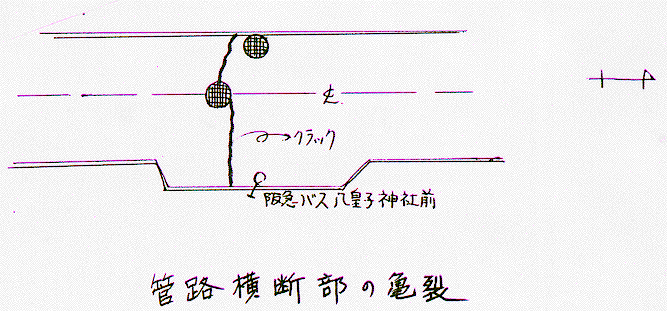 ℄
クラック
阪急バス八皇子神社前
管路横断部の亀裂